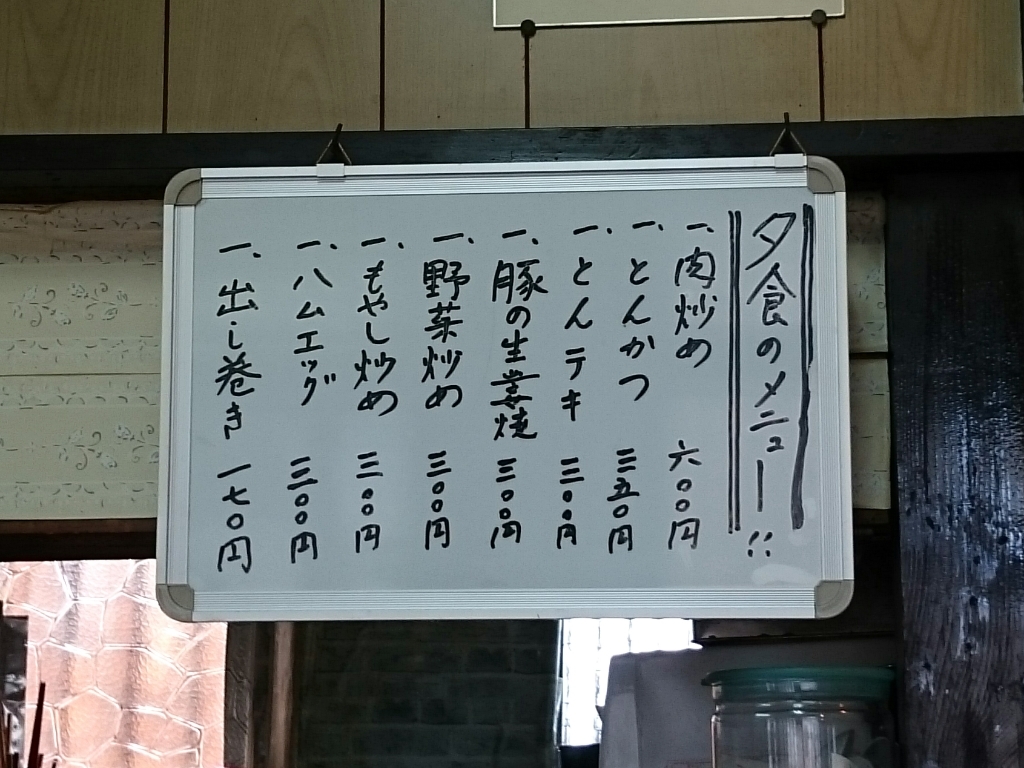 夕食のメニュー!!
一、肉炒め 六〇〇円
一、とんかつ 三五〇円
一、とんテキ 三〇〇円
一、豚の生姜焼 三〇〇円
一、野菜炒め 三〇〇円
一、もやし炒め 三〇〇円
一、ハムエッグ 三〇〇円
一、出し巻き 一七〇円